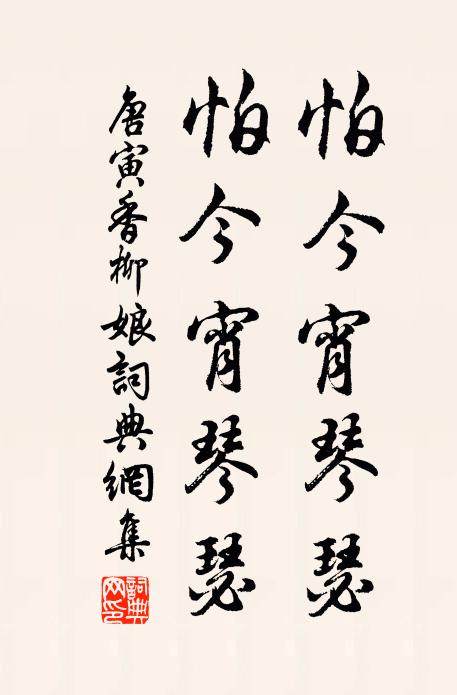 怕今宵琴瑟
怕今宵琴瑟
唐寅香柳娘詞典網集
詞典網印